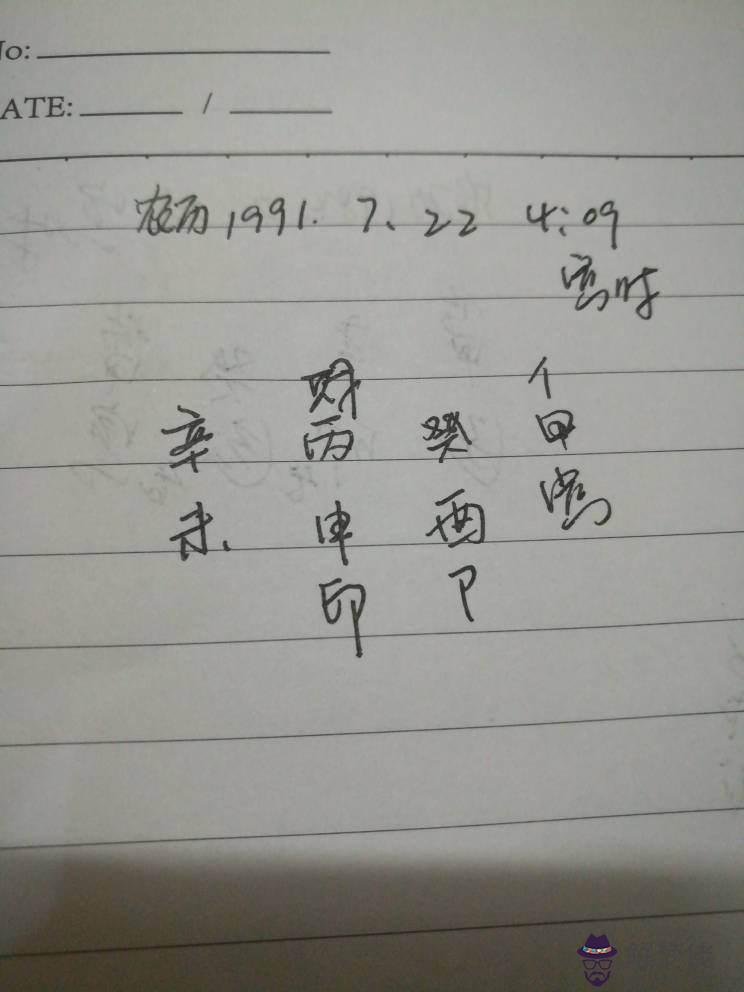 No:
ATE: /
农历1991. 7. 22 4:09
寅时
财 亻
辛 丙 癸 甲
未. 申 酉 寅
印 卩